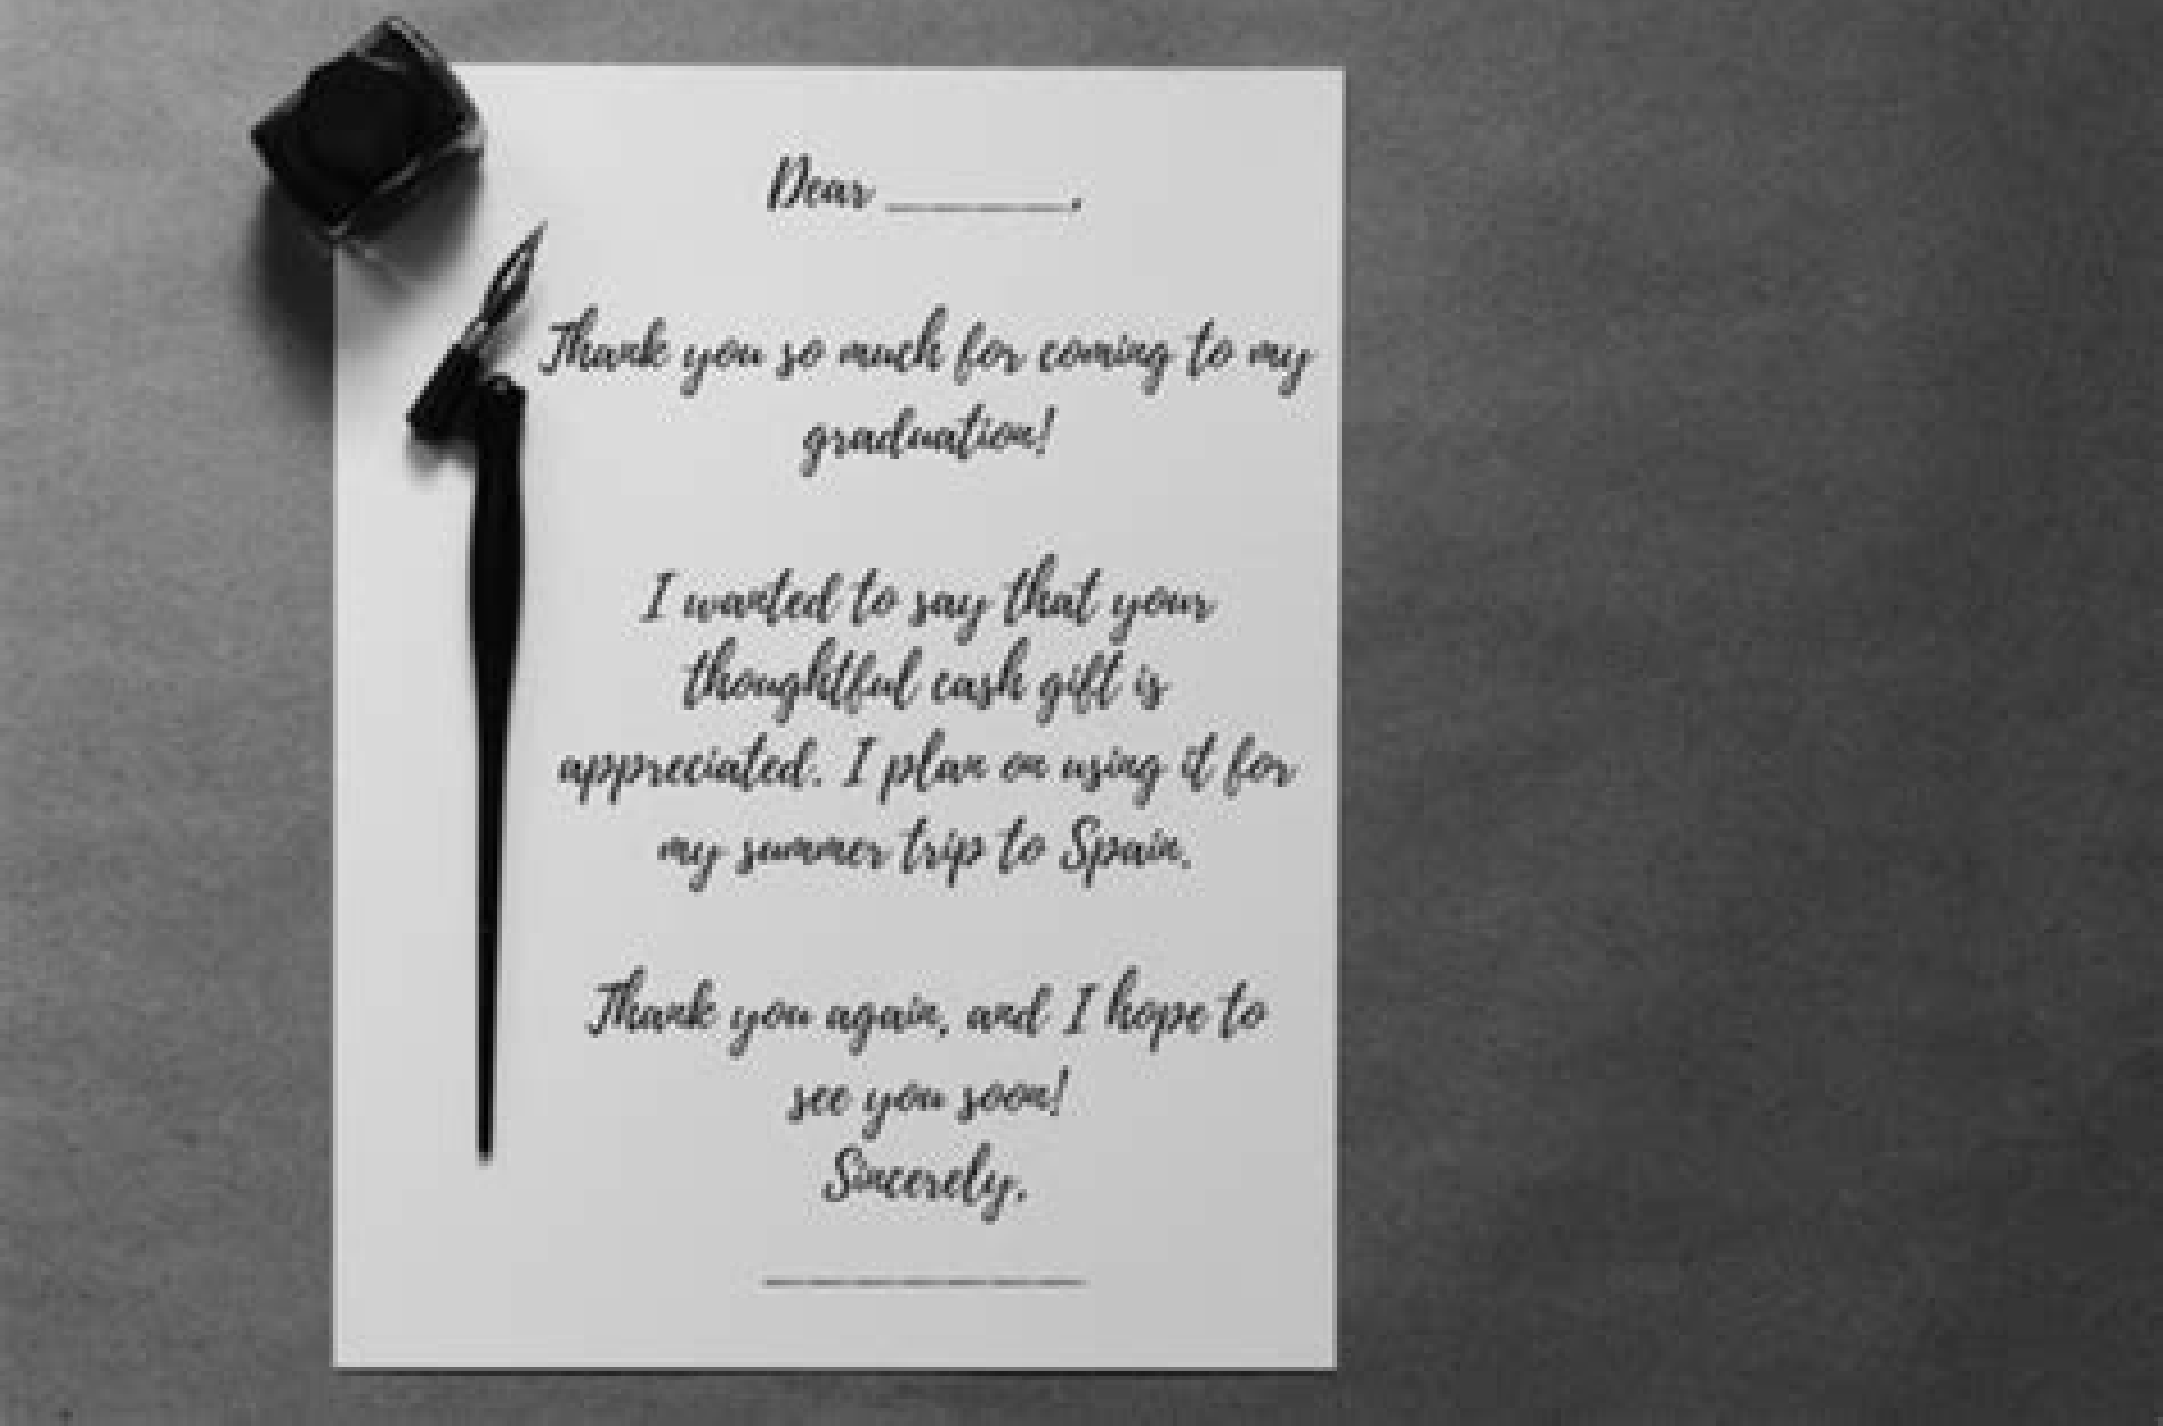 Dear _______,
Thank you so much for coming to my
graduation!
I wanted to say that your
thoughtful cash gift is
appreciated. I plan on using it for
my summer trip to Spain.
Thank you again, and I hope to
see you soon!
Sincerely,
_______